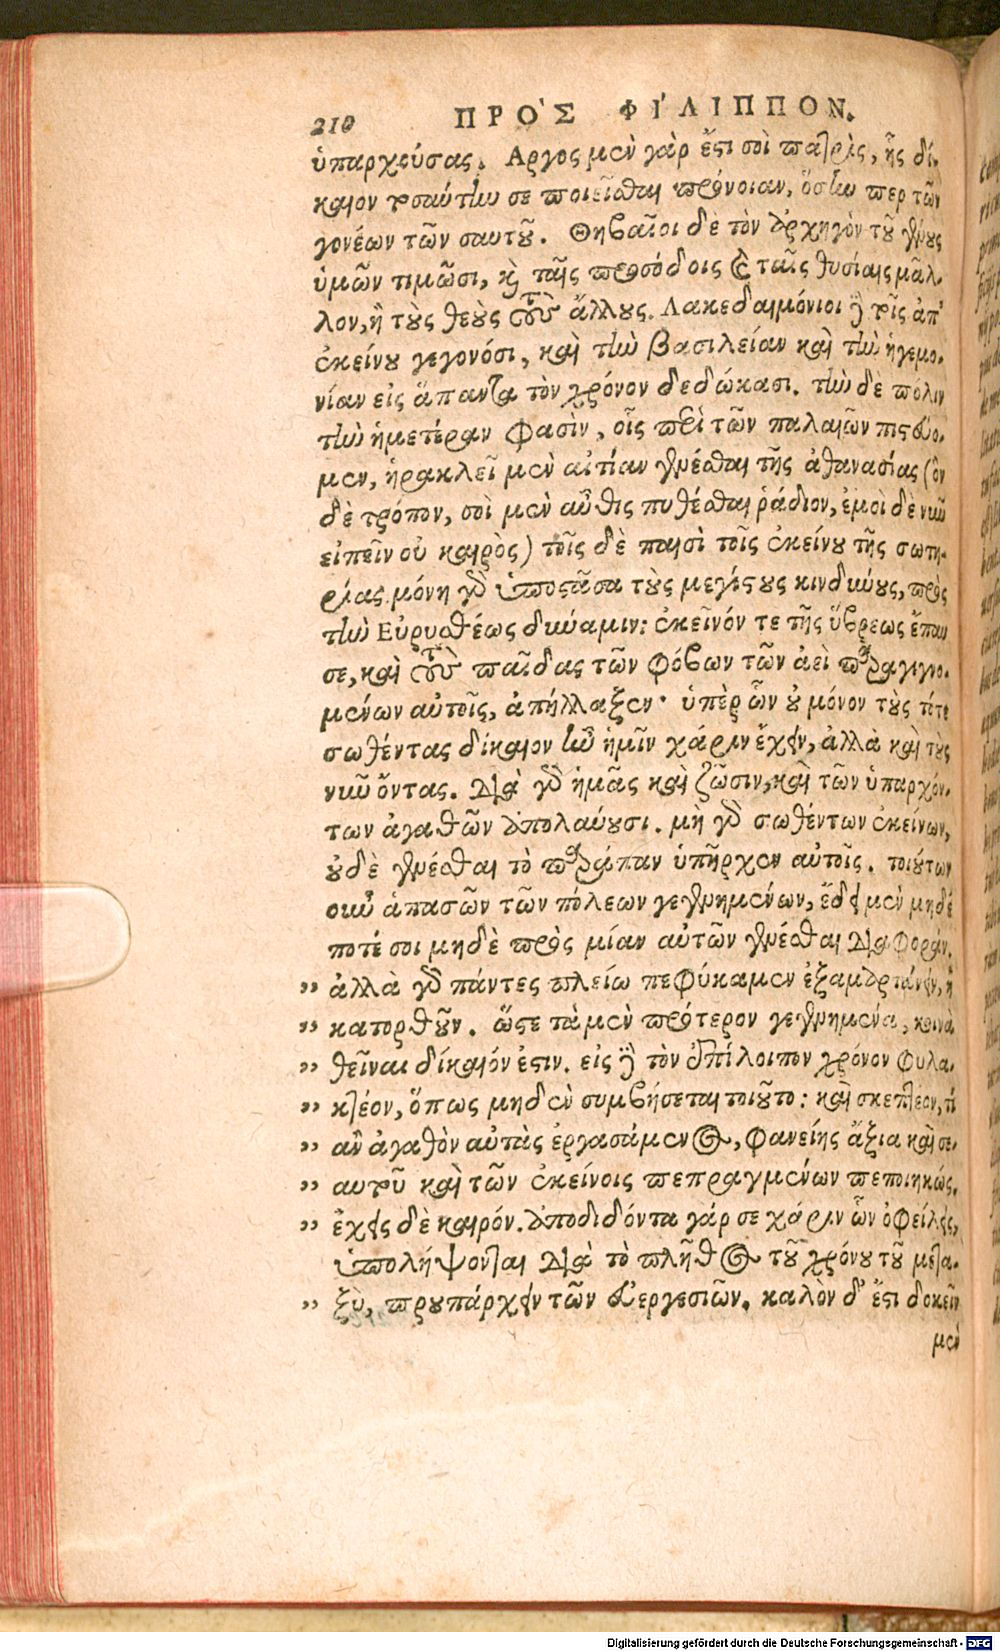 210 ΠΡΟ'Σ ΦΙ'ΛΙΠΠΟΝ.
ὑπαρχούσας. Αργος μὲν γάρ ἔστι σοὶ πατρὶς, ἧς δί-
καιον τοσαύτην σε ποιεῖσθαι πρόνοιαν, ὅσην περ τῶν
γονέων τῶν σαυτοῦ. Θηβαῖοι δὲ τὸν ἀρχηγὸν τοῦ γένους
ὑμῶν τιμῶσι, καὶ ταῖς προσόδοις καὶ ταῖς θυσίαις μᾶλ-
λον, ἢ τοὺς θεοὺς τοὺς ἄλλους. Λακεδαιμόνιοι δὲ τοῖς ἀπ'
ἐκείνου γεγονόσι, καὶ τὴν βασιλείαν καὶ τὴν ἡγεμο-
νίαν εἰς ἅπαντα τὸν χρόνον δεδώκασι. τὴν δὲ πόλιν
τὴν ἡμετέραν φασὶν, οἷς περὶ τῶν παλαιῶν πιστεύο-
μεν, ἡρακλεῖ μὲν αἰτίαν γενέσθαι τῆς ἀθανασίας (ὃν
δὲ τρόπον, σοὶ μὲν αὖθις πυθέσθαι ῥάδιον, ἐμοὶ δὲ νῦν
εἰπεῖν οὐ καιρὸς) τοῖς δὲ παισὶ τοῖς ἐκείνου τῆς σωτη-
ρίας. μόνη γὰρ ὑποστᾶσα τοὺς μεγίστους κινδύνους, πρὸς
τὴν Εὐρυσθέως δύναμιν: ἐκεῖνόν τε τῆς ὕβρεως ἔπαυ
σε, καὶ τοὺς παῖδας τῶν φόβων τῶν ἀεὶ παραγιγνο-
μένων αὐτοῖς, ἀπήλλαξεν· ὑπὲρ ὧν οὐ μόνον τοὺς τότε
σωθέντας δίκαιον ἦν ἡμῖν χάριν ἔχειν, ἀλλὰ καὶ τοὺς
νῦν ὄντας. διὰ γὰρ ἡμᾶς καὶ ζῶσιν, καὶ τῶν ὑπαρχόν-
των ἀγαθῶν ἀπολαύουσι. μὴ γὰρ σωθέντων ἐκείνων,
οὐδὲ γενέσθαι τὸ παράπαν ὑπῆρχεν αὐτοῖς. τοιούτων
οὖν ἁπασῶν τῶν πόλεων γεγενημένων, ἔδει μὲν μηδέ
ποτέ σοι μηδὲ πρὸς μίαν αὐτῶν γενέσθαι διαφοράν.
" ἀλλὰ γὰρ πάντες πλείω πεφύκαμεν ἐξαμαρτάνειν, ἢ
" κατορθοῦν. ὥστε τὰ μὲν πρότερον γεγενημένα, κοινὰ
" θεῖναι δίκαιόν ἐστιν. εἰς δὲ τὸν ἐπίλοιπον χρόνον φυλα-
" κτέον, ὅπως μηδὲν συμβήσεται τοιοῦτο: καὶ σκεπτέον, τί
" ἂν ἀγαθὸν αὐτὰς ἐργασάμενος, φανείης ἄξια καὶ σε-
" αυτοῦ καὶ τῶν ἐκείνοις πεπραγμένων πεποιηκώς.
" ἔχεις δὲ καιρόν. ἀποδιδόντα γάρ σε χάριν ὧν ὀφείλεις,
ὑπολήψονται διὰ τὸ πλῆθος τοῦ χρόνου τοῦ μετα-
" ξὺ, προυπάρχειν τῶν εὐεργεσιῶν. καλὸν δ' ἔστι δοκεῖν
μὲν
Digitalisierung gefördert durch die Deutsche Forschungsgemeinschaft - DFG